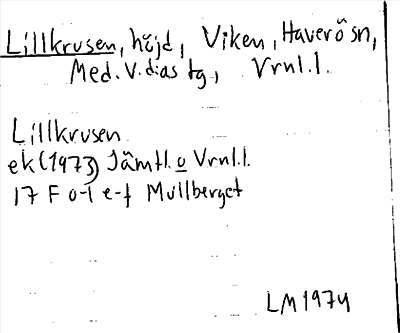 Lillkrusen, höjd, Viken, Haverö sn,
Med. V. dias tg, Vrnl.l.
Lillkrusen
ek (1973) Jämtl. o Vrnl.l.
17 F o-i e-f Mullberget
LM 1974